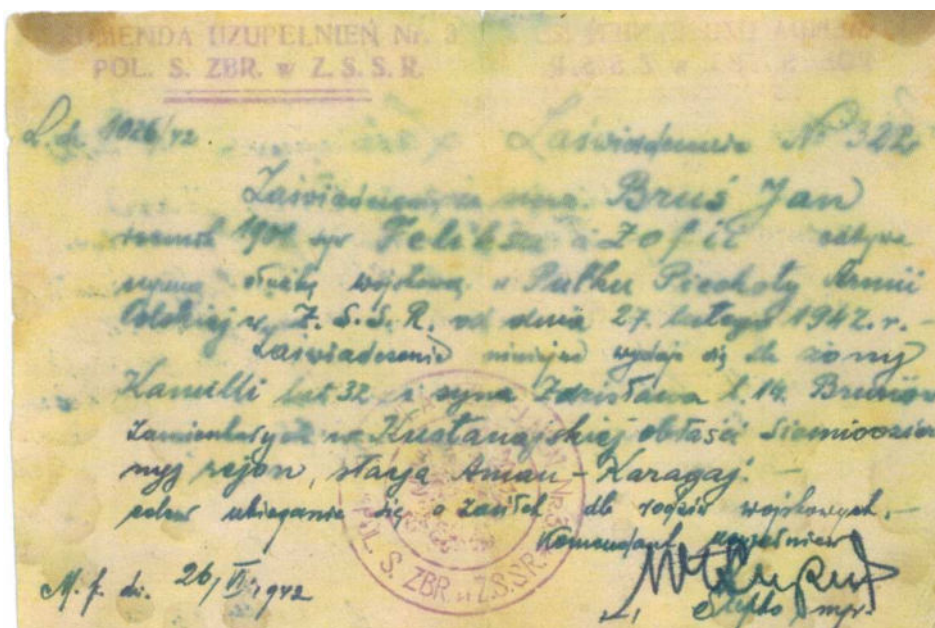 KOMENDA UZUPEŁNIEŃ Nr. 3
POL. S. ZBR. w Z.S.S.R.
L.dz. 1026/42 Zaświadczenie № 322
Zaświadczenie Bruś Jan
rocznik syn Feliksa i Zofii odbywa
służbę wojskową w Pułku Piechoty Armii
Polskiej w Z.S.S.R. od dnia 27. lutego 1942.r. –
Zaświadczenie niniejsze wydaje się dla żony
Kamilli lat 32 i syna Zdzisława l. 14. Brusiów
zamieszkałych w Kustanajskiej obłaści Siemioozier
nyj rejon, stacja Aman-Karagaj. –
celem ubiegania się o zasiłek dla rodzin wojskowych. –
Komendant uzupełnień
M.p. dn. 26/VI.1942
mjr.
POL. S. ZBR. w Z.S.S.R.